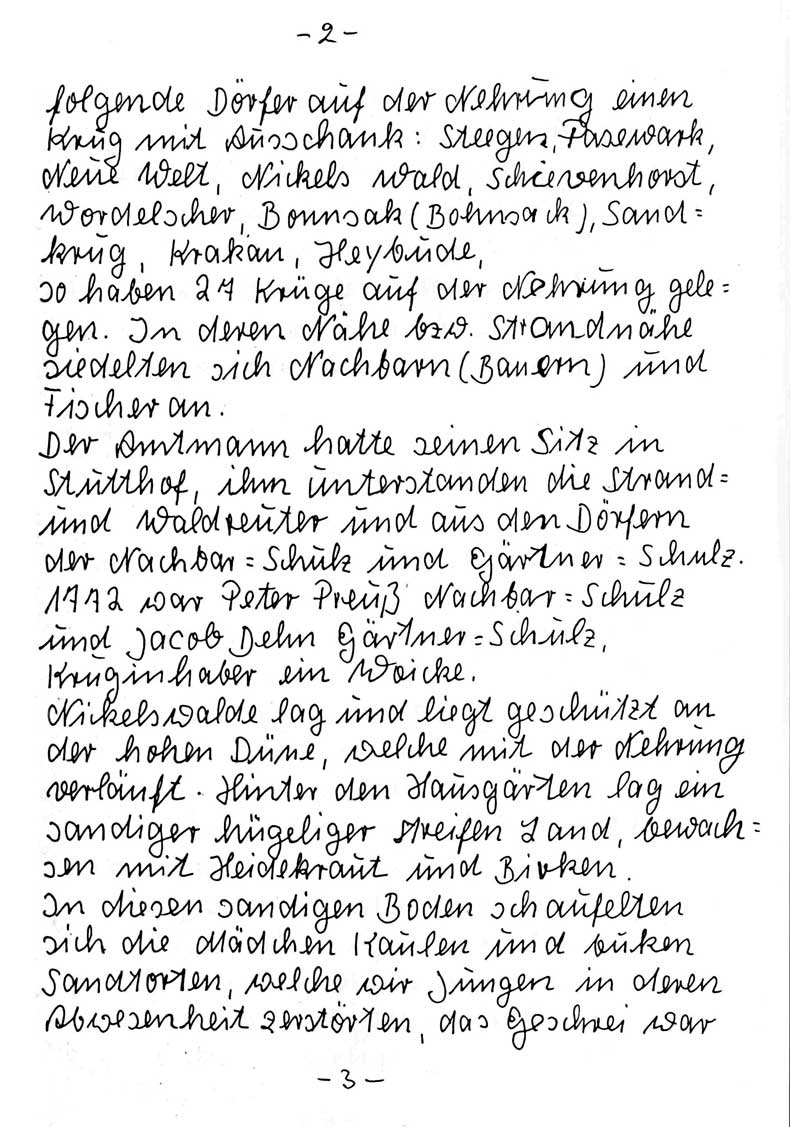 -2-
folgende Dörfer auf der Nehrung einen
Krug mit Ausschank: Steegen, Pasewark,
Neue Welt, Nickels wald, Schievenhorst,
Wordelscher, Bonnsak (Bohnsack), Sand=
krug, Krakau, Heybude,
so haben 27 Krüge auf der Nehrung gele=
gen. In deren Nähe bzw. Strandnähe
siedelten sich Nachbarn (Bauern) und
Fischer an.
Der Amtmann hatte seinen Sitz in
Stutthof, ihm unterstanden die Strand=
und Waldreuter und aus den Dörfern
der Nachbar=Schulz und Gärtner=Schulz.
1772 war Peter Preuß Nachbar=Schulz
und Jacob Dehn Gärtner=Schulz,
Kruginhaber ein Woicke.
Nickelswalde lag und liegt geschützt an
der hohen Düne, welche mit der Nehrung
verläuft. Hinter den Hausgärten lag ein
sandiger hügeliger Streifen Land, bewach=
sen mit Heidekraut und Birken.
In diesen sandigen Boden schaufelten
sich die Mädchen Kaulen und buken
Sandtorten, welche wir Jungen in deren
Abwesenheit zerstörten, das Geschrei war
-3-